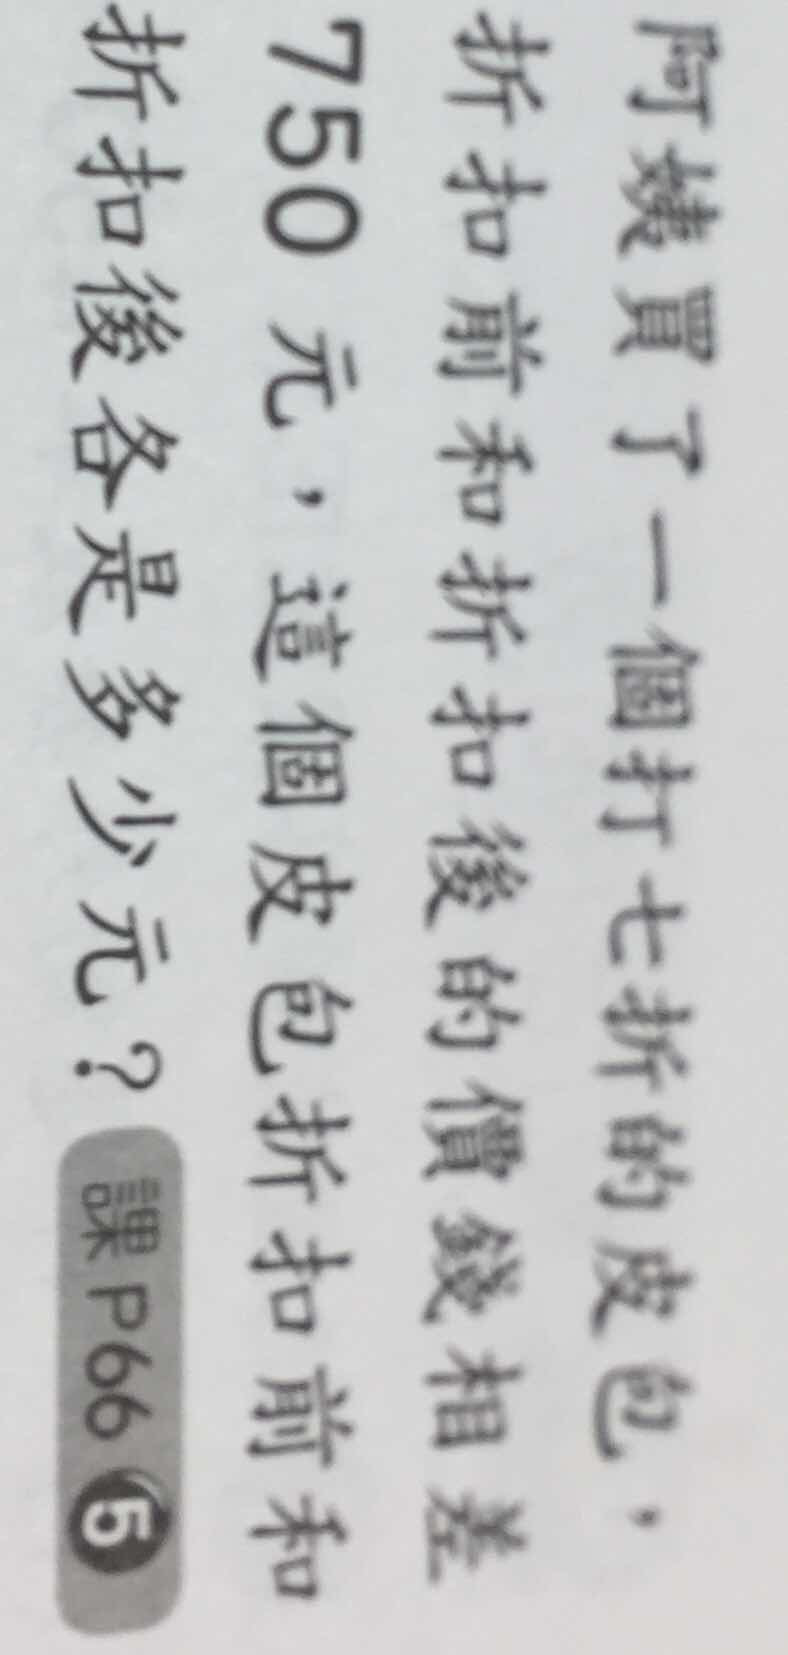 阿姨買了一個打七折的皮包，
折扣前和折扣後的價錢相差
750元，這個皮包折扣前和
折扣後各是多少元？課P66 5